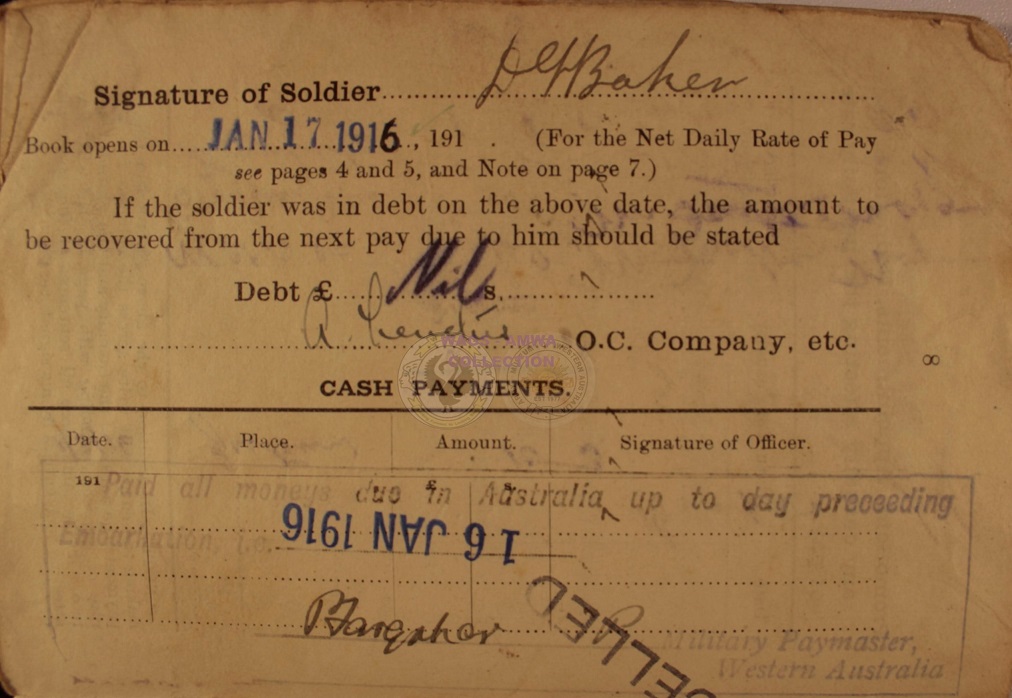 Signature of Soldier D H Baker
Book opens on JAN 17 1916, 191 . (For the Net Daily Rate of Pay
see pages 4 and 5, and Note on page 7.)
If the soldier was in debt on the above date, the amount to
be recovered from the next pay due to him should be stated
Debt £ Nil s.
A. O.C. Company, etc.
8
AMWA
COLLECTION
CASH PAYMENTS.
Date. Place. Amount. Signature of Officer.
191 £ s.
Paid all moneys due in Australia up to day preceeding
Embarkation, i.e. 16 JAN 1916
Military Paymaster,
Western Australia